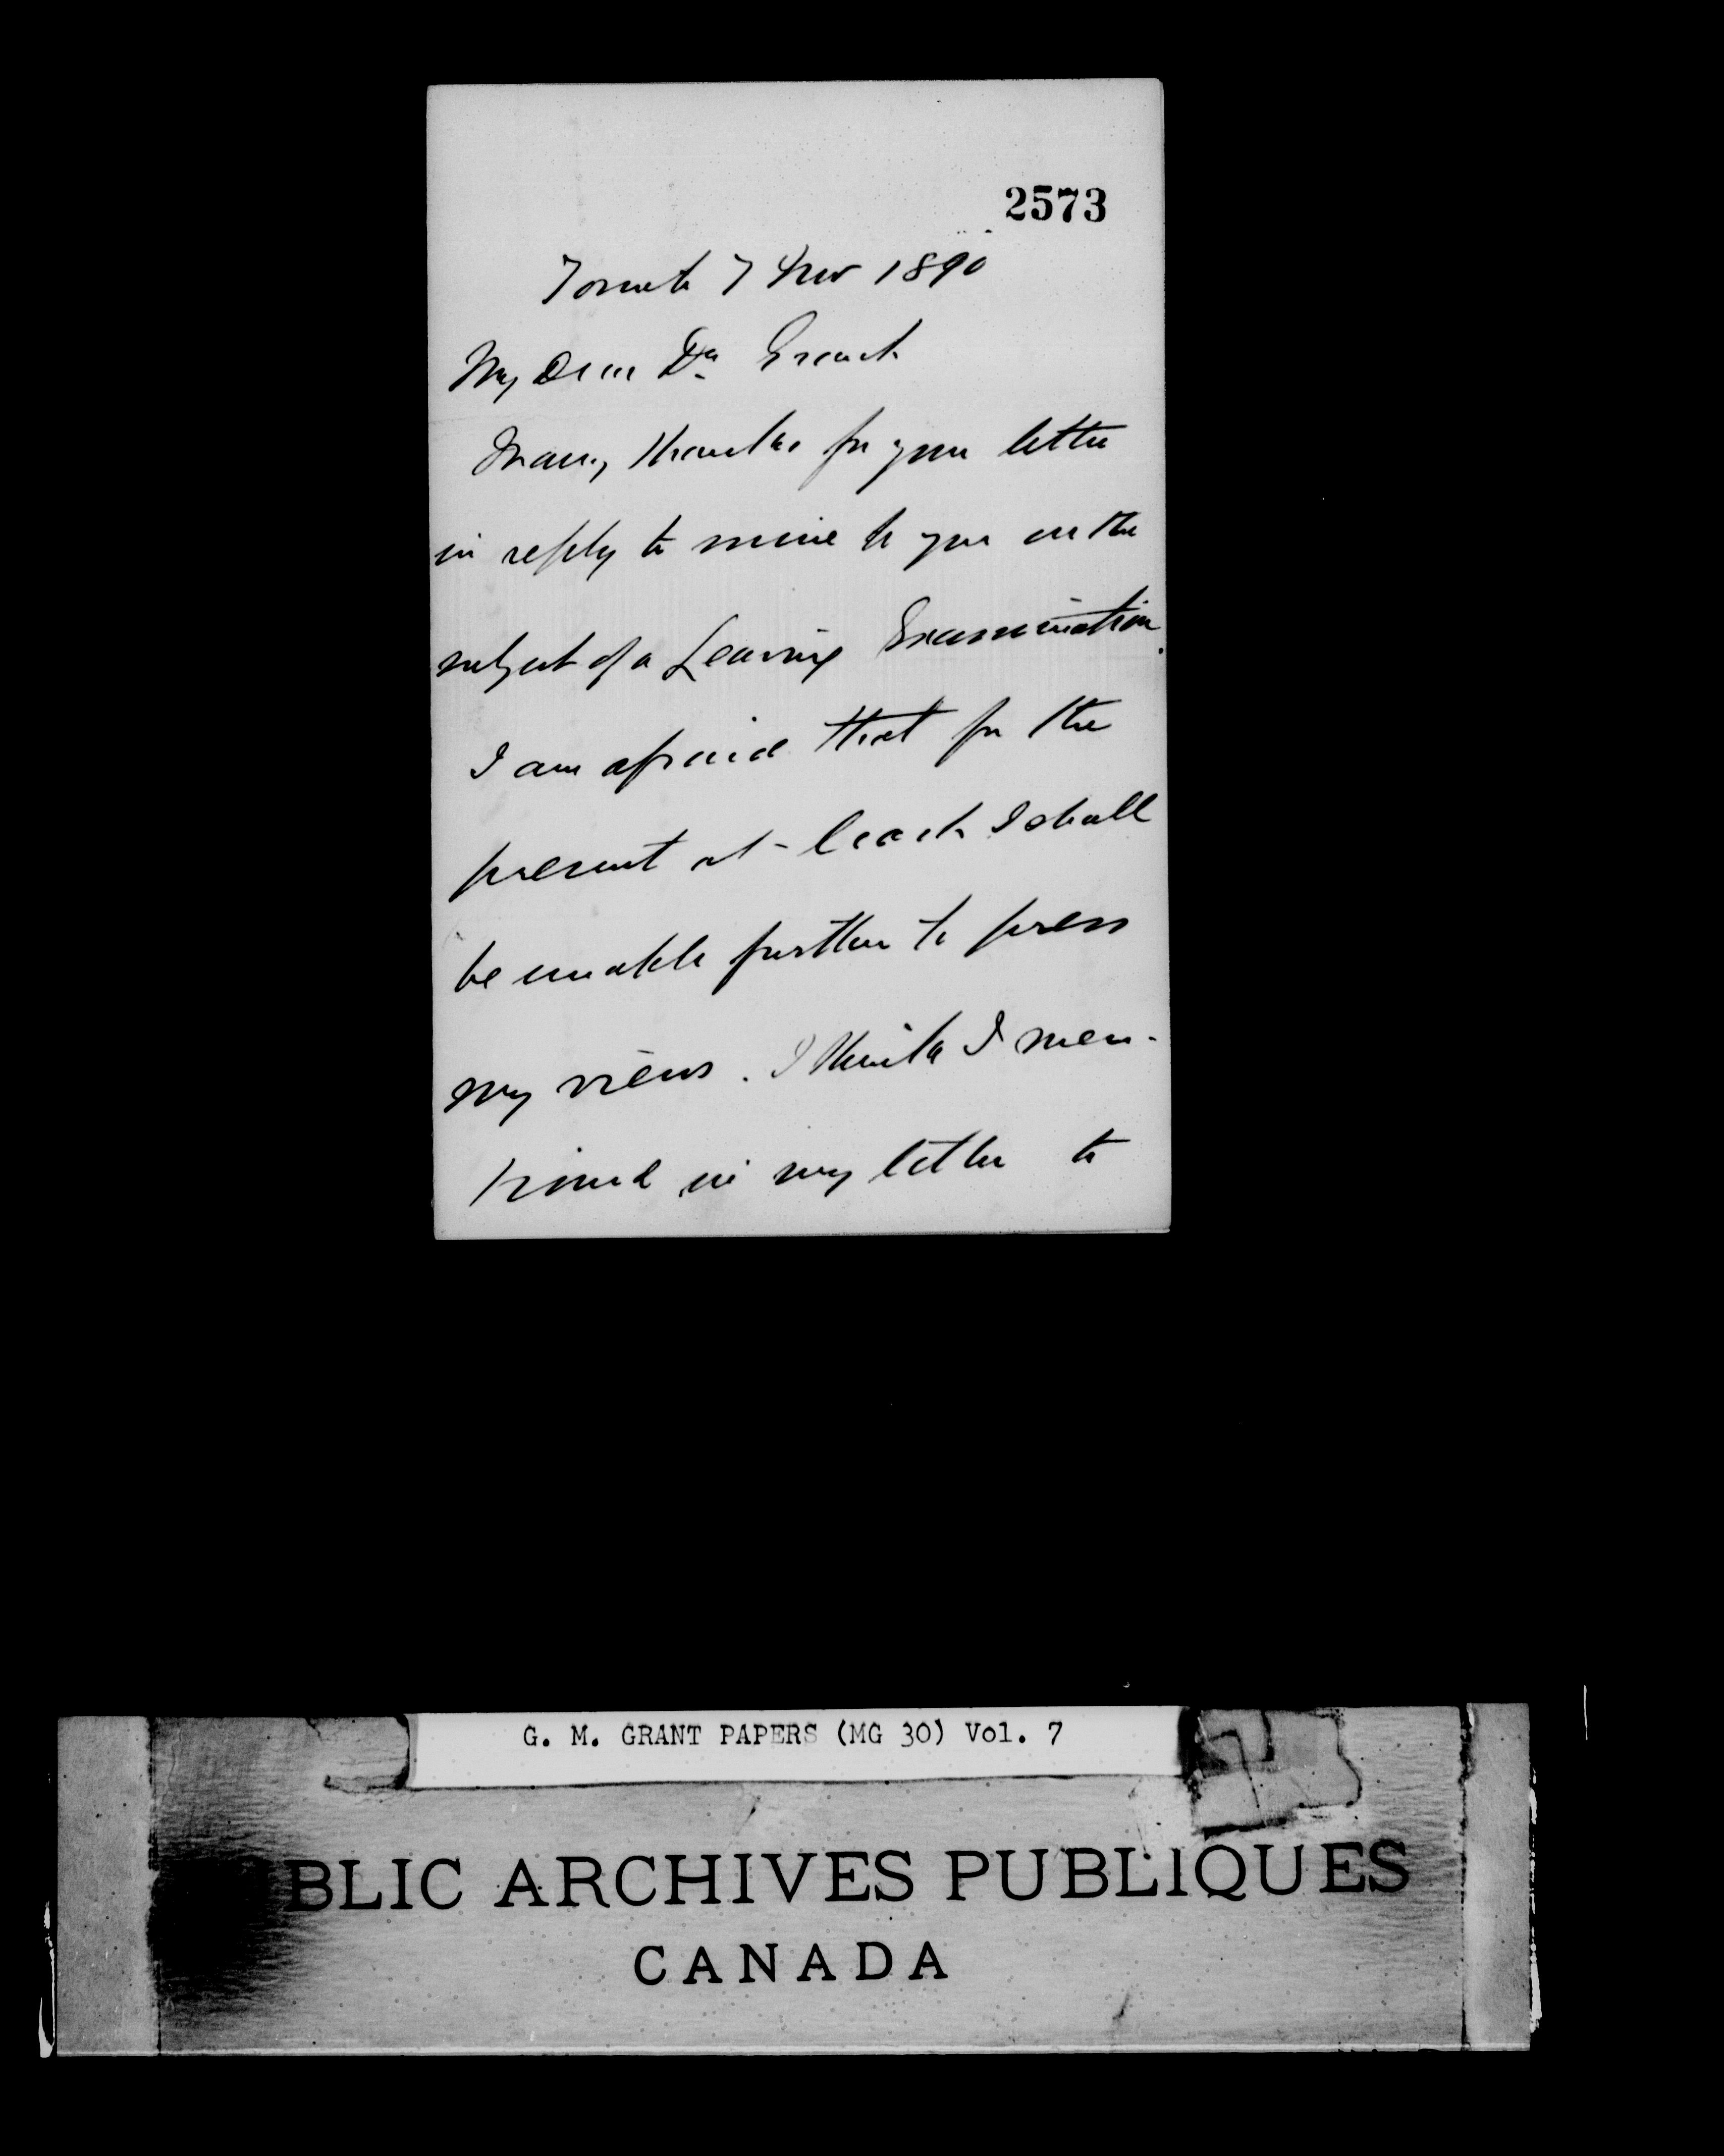 2573
Toronto 7 Nov 1890
My Dear Dr Grant
Many thanks for your letter
in reply to mine to you on the
subject of a Leaving Examination.
I am afraid that for the
present at least I shall
be unable further to press
my views. I think I men-
tioned in my letter to
G. M. GRANT PAPERS (MG 30) Vol. 7
BLIC ARCHIVES PUBLIQUES
CANADA